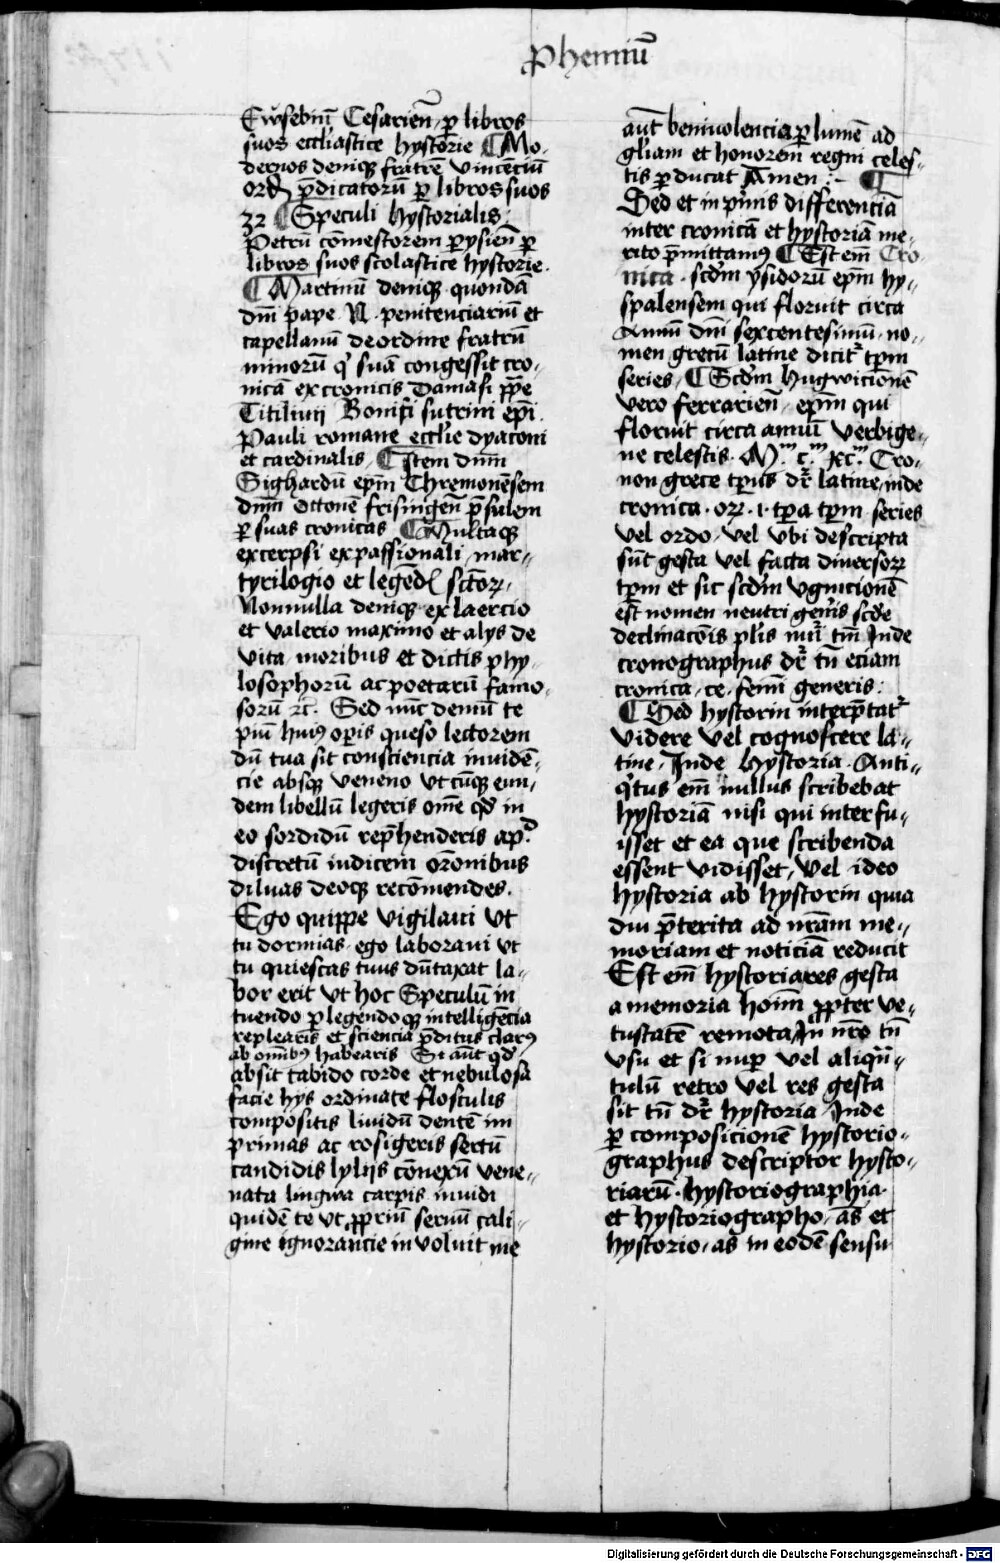 Prohemiū
Ewsebiū Cesarien̄ ꝑ libros
suos eccl̄iastice hystorie ¶ Mo-
dernos deniqꝫ fratrē vincēciū
ord̄ p̄dicatorū ꝑ libros suos
32 ¶ Speculi hystorialis
Petrū cōmestorem pysien̄ ꝑ
libros suos scolastice hystorie.
¶ Martinū deniqꝫ quondā
dn̄i pape N. penitenciariū et
capellanū de ordine fratrū
minorū qͥ suā congessit cro-
nicā ex cronicis Damasi pp̄e
Bonifi sutrini ep̄i
Pauli romane eccl̄ie dyaconi
et cardinalis, ¶ Item dn̄m
Sighardū ep̄m Chremonēsem
dn̄m Ottonē frisingen̄ p̄sulem
ꝑ suas cronicas ¶ Multaqꝫ
excerpsi ex passionali, mar-
tyrilogio et legēd sc̄toꝝ,
Nonnulla deniqꝫ ex laercio
et valerio maximo et alys de
vita, moribus et dictis phy-
losophorū ac poetarū famo-
sorū ⁊c̄. Sed nūc demū te
piū huiꝰ oꝑis queso lectorem
dū tua sit consciencia invidē-
cie absqꝫ veneno vt cūqꝫ eun-
dem libellū legeris om̄e qd̄ in
eo sordidū rep̄henderis
discretū iudicem or̄onibus
diluas deoqꝫ recōmendes.
Ego quippe vigilaui vt
tu dormias, ego laboraui vt
tu quiescas tuus dūtaxat la-
bor erit vt hoc Speculū in
tuendo ꝑ legendoqꝫ intelligēcia
replearis et sciencia p̄ditus clarꝰ
ab om̄ibꝰ habearis Si aūt qd̄
absit tabido corde et nebulosa
facie hys ordinate flosculis
compositis liuidū dentē im
primas ac rosigeris sertū
candidis lylijs cōnexū vene-
nata lingwa carpis, inuidi
quidē te vt ꝓpriū seruū cali-
gine ignorancie inuoluit me
aūt beniuolencia ꝑ lumē ad
gl̄iam et honorem regni celes-
tis ꝑducat Amen :- ¶
Sed et in pͥmis differenciā
inter cronicā et hystoriā me-
rito p̄mittamꝰ ¶ Est em̄ Cro
nica . scd̄m ysidorū ep̄m hy-
spalensem qui floruit circa
Annū dn̄i sexcentesimū, no-
men grecū latine dicit᷑ tp̄m
series, ¶ Scd̄m hugwicionē
vero ferrarien̄, ep̄m qui
floruit circa annū verbige-
ne celestis. Mᵐ cᵐ xcᵐ Cro-
non grece tp̄us dr̄ latine, inde
cronica . oꝝ . i . tp̄a tp̄m series
vel ordo, vel vbi descripta
sūt gesta vel facta diuersoꝝ
tp̄m et sic scd̄m vgucionē
est nomen neutri gen̄is scd̄e
declinacōis pl̄is nūi tm̄ Inde
cronographus dr̄ tn̄ eciam
cronica, ce, femi generis:
¶ Sed hystorin interp̄tat᷑
videre vel cognoscere la-
tine, Inde hystoria . Anti-
qͥtus em̄ nullus scribebat
hystoriā nisi qui interfu-
isset et ea que scribenda
essent vidisset, vel ideo
hystoria ab hystorin quia
diu p̄terita ad nr̄am me-
moriam et noticiā reducit
Est em̄ hystoria res gesta
a memoria hoīm ꝓpter ve-
tustatē remota, In nr̄o tn̄
vsu et si nuꝑ vel aliqn̄-
tulū retro vel res gesta
sit tn̄ dr̄ hystoria Inde
ꝑ composicionē hystorio-
graphus descriptor hysto-
riarū . hystoriographia.
et hystoriographo, as et
hystorio, as in eodē sensu
Digitalisierung gefördert durch die Deutsche Forschungsgemeinschaft - DFG